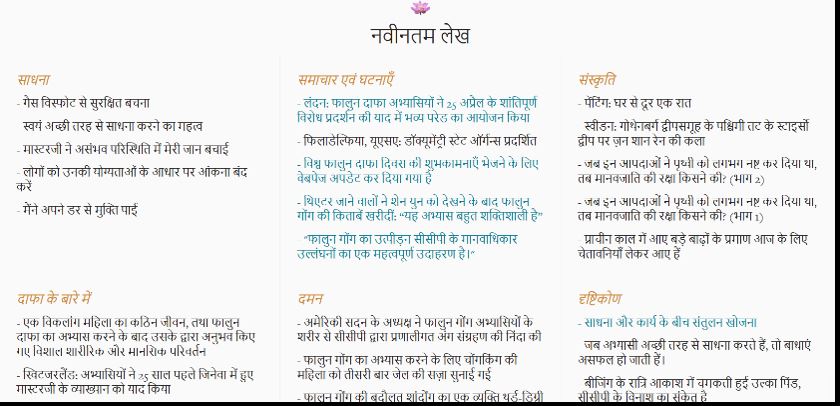 नवीनतम लेख
साधना
- गैस विस्फोट से सुरक्षित बचना
स्वयं अच्छी तरह से साधना करने का महत्व
- मास्टरजी ने असंभव परिस्थिति में मेरी जान बचाई
- लोगों को उनकी योग्यताओं के आधार पर आंकना बंद
करें
- मैंने अपने डर से मुक्ति पाई
समाचार एवं घटनाएँ
- लंदन: फालुन दाफा अभ्यासियों ने 25 अप्रैल के शांतिपूर्ण
विरोध प्रदर्शन की याद में भव्य परेड का आयोजन किया
- फिलाडेल्फिया, यूएसए: डॉक्यूमेंट्री स्टेट ऑर्गन्स प्रदर्शित
- विश्व फालुन दाफा दिवस की शुभकामनाएँ भेजने के लिए
वेबपेज अपडेट कर दिया गया है
- थिएटर जाने वालों ने शेन युन को देखने के बाद फालुन
गोंग की किताबें खरीदीं: “यह अभ्यास बहुत शक्तिशाली है”
"फालुन गोंग का उत्पीड़न सीसीपी के मानवाधिकार
उल्लंघनों का एक महत्वपूर्ण उदाहरण है।"
संस्कृति
- पेंटिंग: घर से दूर एक रात
स्वीडन: गोथेनबर्ग द्वीपसमूह के पश्चिमी तट के स्टाइर्सो
द्वीप पर ज़न शान रेन की कला
- जब इन आपदाओं ने पृथ्वी को लगभग नष्ट कर दिया था,
तब मानवजाति की रक्षा किसने की? (भाग 2)
- जब इन आपदाओं ने पृथ्वी को लगभग नष्ट कर दिया था,
तब मानवजाति की रक्षा किसने की? (भाग 1)
प्राचीन काल में आए बड़े बाढ़ों के प्रमाण आज के लिए
चेतावनियाँ लेकर आए हैं
दाफा के बारे में
- एक विकलांग महिला का कठिन जीवन, तथा फालुन
दाफा का अभ्यास करने के बाद उसके द्वारा अनुभव किए
गए विशाल शारीरिक और मानसिक परिवर्तन
- स्विटजरलैंड: अभ्यासियों ने 25 साल पहले जिनेवा में हुए
मास्टरजी के व्याख्यान को याद किया
दमन
- अमेरिकी सदन के अध्यक्ष ने फालुन गोंग अभ्यासियों के
शरीर से सीसीपी द्वारा प्रणालीगत अंग संग्रहण की निंदा की
- फालुन गोंग का अभ्यास करने के लिए चोंगकिंग की
महिला को तीसरी बार जेल की सज़ा सुनाई गई
- फालुन गोंग की बदौलत शांदोंग का एक व्यक्ति थर्ड-डिग्री
दृष्टिकोण
- साधना और कार्य के बीच संतुलन खोजना
जब अभ्यासी अच्छी तरह से साधना करते हैं, तो बाधाएं
असफल हो जाती हैं।
बीजिंग के रात्रि आकाश में चमकती हुई उल्का पिंड,
सीसीपी के विनाश का संकेत है